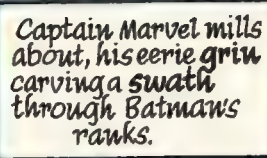 Captain Marvel mills
about, his eerie grin
carving a swath
through Batman's
ranks.